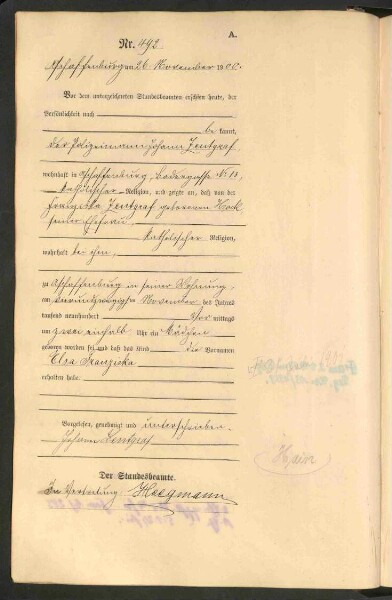 A.
Nr. 492
Aschaffenburg am 26 November 1900.
Vor dem unterzeichneten Standesbeamten erschien heute, der
Persönlichkeit nach
be kannt,
der Polizeimann Johann Zentgraf
wohnhaft in Aschaffenburg,
katholischer Religion, und zeigte an, daß von der
Franziska Zentgraf geborenen
seiner Ehefrau
katholischer Religion,
wohnhaft bei ihm,
zu Aschaffenburg in seiner Wohnung
am November des Jahres
tausend neunhundert Vor mittags
um zwei einhalb Uhr ein Mädchen
geboren worden sei und daß das Kind die Vornamen
Elsa Franziska
erhalten habe.
Vorgelesen, genehmigt und unterschrieben
Johann Zentgraf
Der Standesbeamte.
In Vertretung: Hoegmann